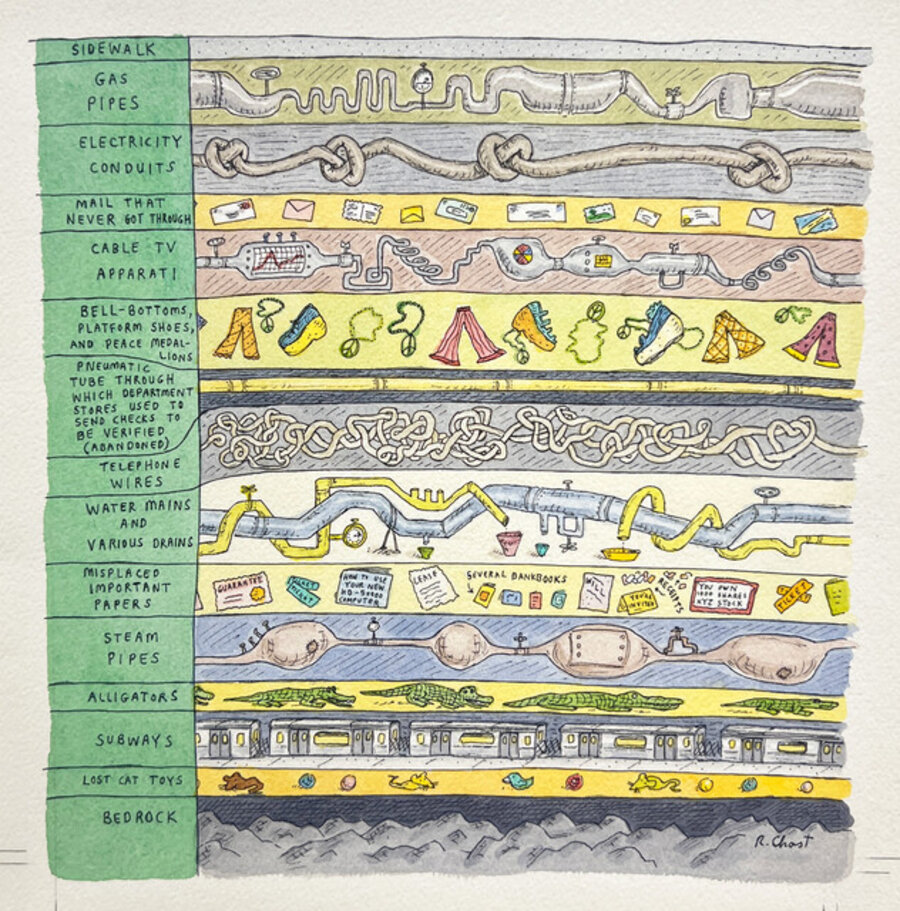 SIDEWALK
GAS
PIPES
ELECTRICITY
CONDUITS
MAIL THAT
NEVER GOT THROUGH
CABLE TV
APPARATI
BELL-BOTTOMS,
PLATFORM SHOES,
AND PEACE MEDAL-
LIONS
PNEUMATIC
TUBE THROUGH
WHICH DEPARTMENT
STORES USED TO
SEND CHECKS TO
BE VERIFIED
(ABANDONED)
TELEPHONE
WIRES
WATER MAINS
AND
VARIOUS DRAINS
MISPLACED
IMPORTANT
PAPERS
GUARANTEE
HOW TO USE
YOUR NEW
COMPUTER
LEASE
SEVERAL BANKBOOKS
WILL
YOU'RE
INVITED
RECEIPTS
YOU OWN
1000 SHARES
XYZ STOCK
TICKET
STEAM
PIPES
ALLIGATORS
SUBWAYS
LOST CAT TOYS
BEDROCK
R. Chast